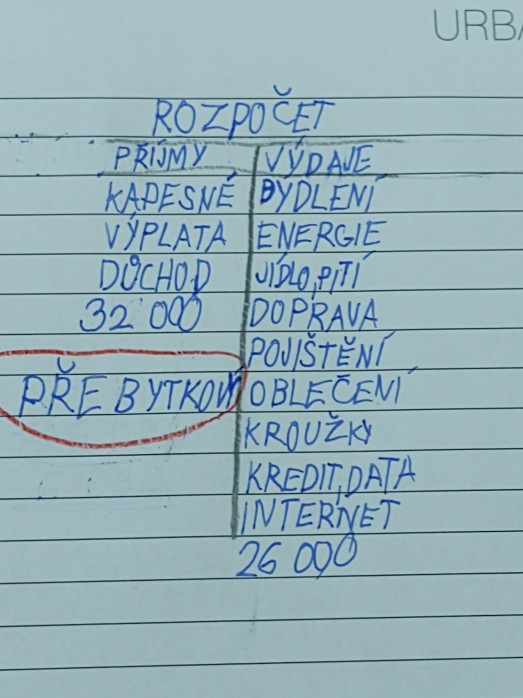 URBA
ROZPOČET
PŘÍJMY
KAPESNÉ
VÝPLATA
DŮCHOD
32 000
PŘEBYTKOVÝ
VÝDAJE
BYDLENÍ
ENERGIE
JÍDLO, PITÍ
DOPRAVA
POJIŠTĚNÍ
OBLEČENÍ
KROUŽKY
KREDIT, DATA
INTERNET
26 000